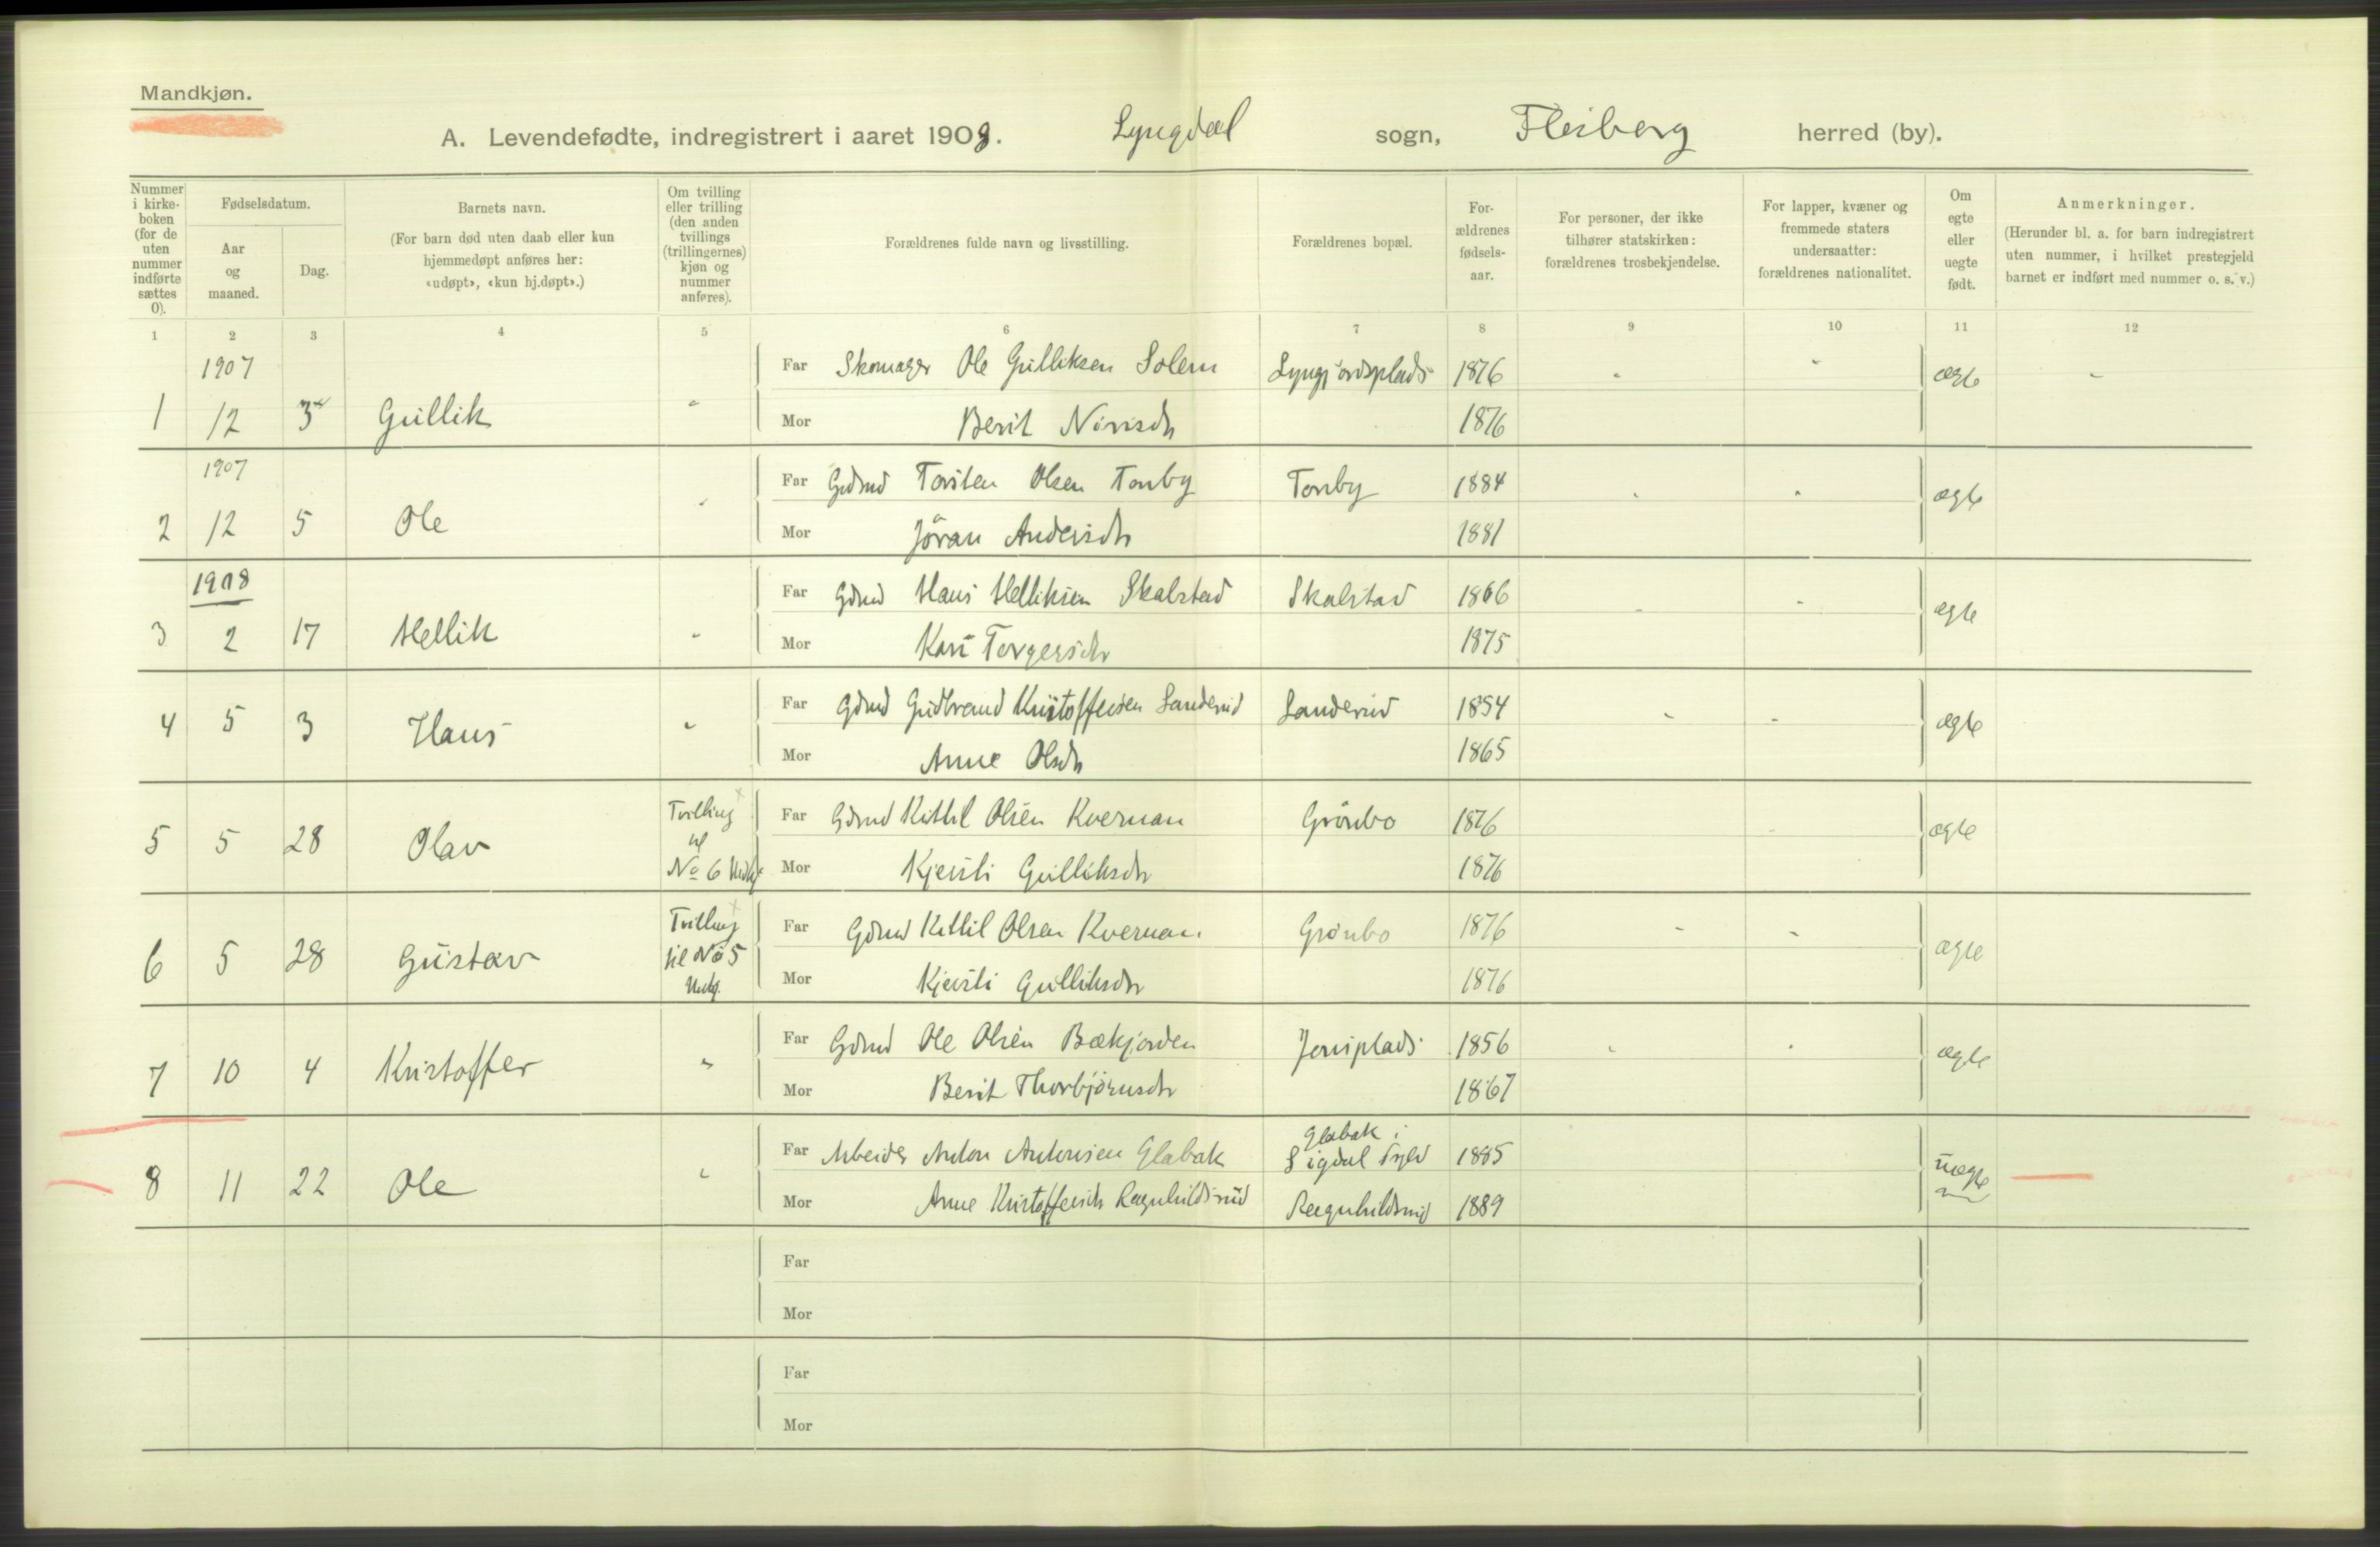 Mandkjøn.
A. Levendefødte, indregistrert i aaret 1908. Lyngdal sogn, Flesberg herred (by).
Nummer i kirkeboken (for de uten nummer indførte sættes 0).
Fødselsdatum.
Aar og maaned.
Dag.
Barnets navn.
(For barn død uten daab eller kun hjemmedøpt anføres her: «udøpt», «kun hj.døpt».)
Om tvilling eller trilling (den anden tvillings (trillingernes) kjøn og nummer anføres).
Forældrenes fulde navn og livsstilling.
Forældrenes bopæl.
For-ældrenes fødsels-aar.
For personer, der ikke tilhører statskirken: forældrenes trosbekjendelse.
For lapper, kvæner og fremmede staters undersaatter: forældrenes nationalitet.
Om egte eller uegte født.
Anmerkninger.
(Herunder bl. a. for barn indregistrert uten nummer, i hvilket prestegjeld barnet er indført med nummer o. s. v.)
1 2 3 4 5 6 7 8 9 10 11 12
1907
Far Skomager Ole Gulliksen Solem 1876 ægte
1 12 3 Gullik
Mor Berit 1876
1907
Far Gdmd Torsten Olsen Tonby Tonby 1884 ægte
2 12 5 Ole
Mor Jöran Andersdr 1881
1908
Far Gdmd Hans Helliksen Skalstad Skalstad 1866 ægte
3 2 17 Hellik
Mor Kari Torgersdr 1875
Far Gdmd Gudbrand Kristoffersen Sanderud Sanderud 1854 ægte
4 5 3 Hans
Mor Anne Olsdr 1865
Far Gdmd Kittil Olsen Kvernan Grönbo 1876 ægte
5 5 28 Olav Tvilling til No 6
Mor Kjersti Gulliksdr 1876
Far Gdmd Kittil Olsen Kvernan Grönbo 1876 ægte
6 5 28 Gustav Tvilling til No 5
Mor Kjersti Gulliksdr 1876
Far Gdmd Ole Olsen Bækjorden Jensplads 1856 ægte
7 10 4 Kristoffer
Mor Berit Thorbjörnsdr 1867
Far Arbeider Anton Antonsen Glabak Glabak i Sigdal 1885 uægte
8 11 22 Ole
Mor Anne Kristoffersdr Ragnhildsrud Ragnhildsrud 1889
Far
Mor
Far
Mor